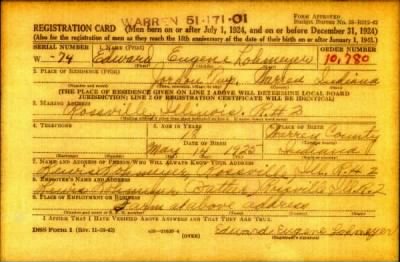 WARREN 51-171-01
FORM APPROVED
REGISTRATION CARD (Men born on or after July 1, 1924, and on or before December 31, 1924)
(Also for the registration of men as they reach the 18th anniversary of the date of their birth on or after January 1, 1925.)
SERIAL NUMBER 1. NAME (Print) ORDER NUMBER
W-74 Edward Eugene Lohmeyer 10,780
2. PLACE OF RESIDENCE (Print)
Jordan Twp. Warren Indiana
(THE PLACE OF RESIDENCE GIVEN ON LINE 2 ABOVE WILL DETERMINE LOCAL BOARD
JURISDICTION; LINE 2 OF REGISTRATION CERTIFICATE WILL BE IDENTICAL)
3. MAILING ADDRESS
Rossville R#2
4. TELEPHONE 5. AGE IN YEARS 6. PLACE OF BIRTH
Warren County
DATE OF BIRTH
May 14 1925 Indiana
7. NAME AND ADDRESS OF PERSON WHO WILL ALWAYS KNOW YOUR ADDRESS
Rossville Ill. R#2
8. EMPLOYER'S NAME AND ADDRESS
Rossville
9. PLACE OF EMPLOYMENT OR BUSINESS
Farm at above address
I AFFIRM THAT I HAVE VERIFIED ABOVE ANSWERS AND THAT THEY ARE TRUE.
DSS Form 1 Edward Eugene Lohmeyer